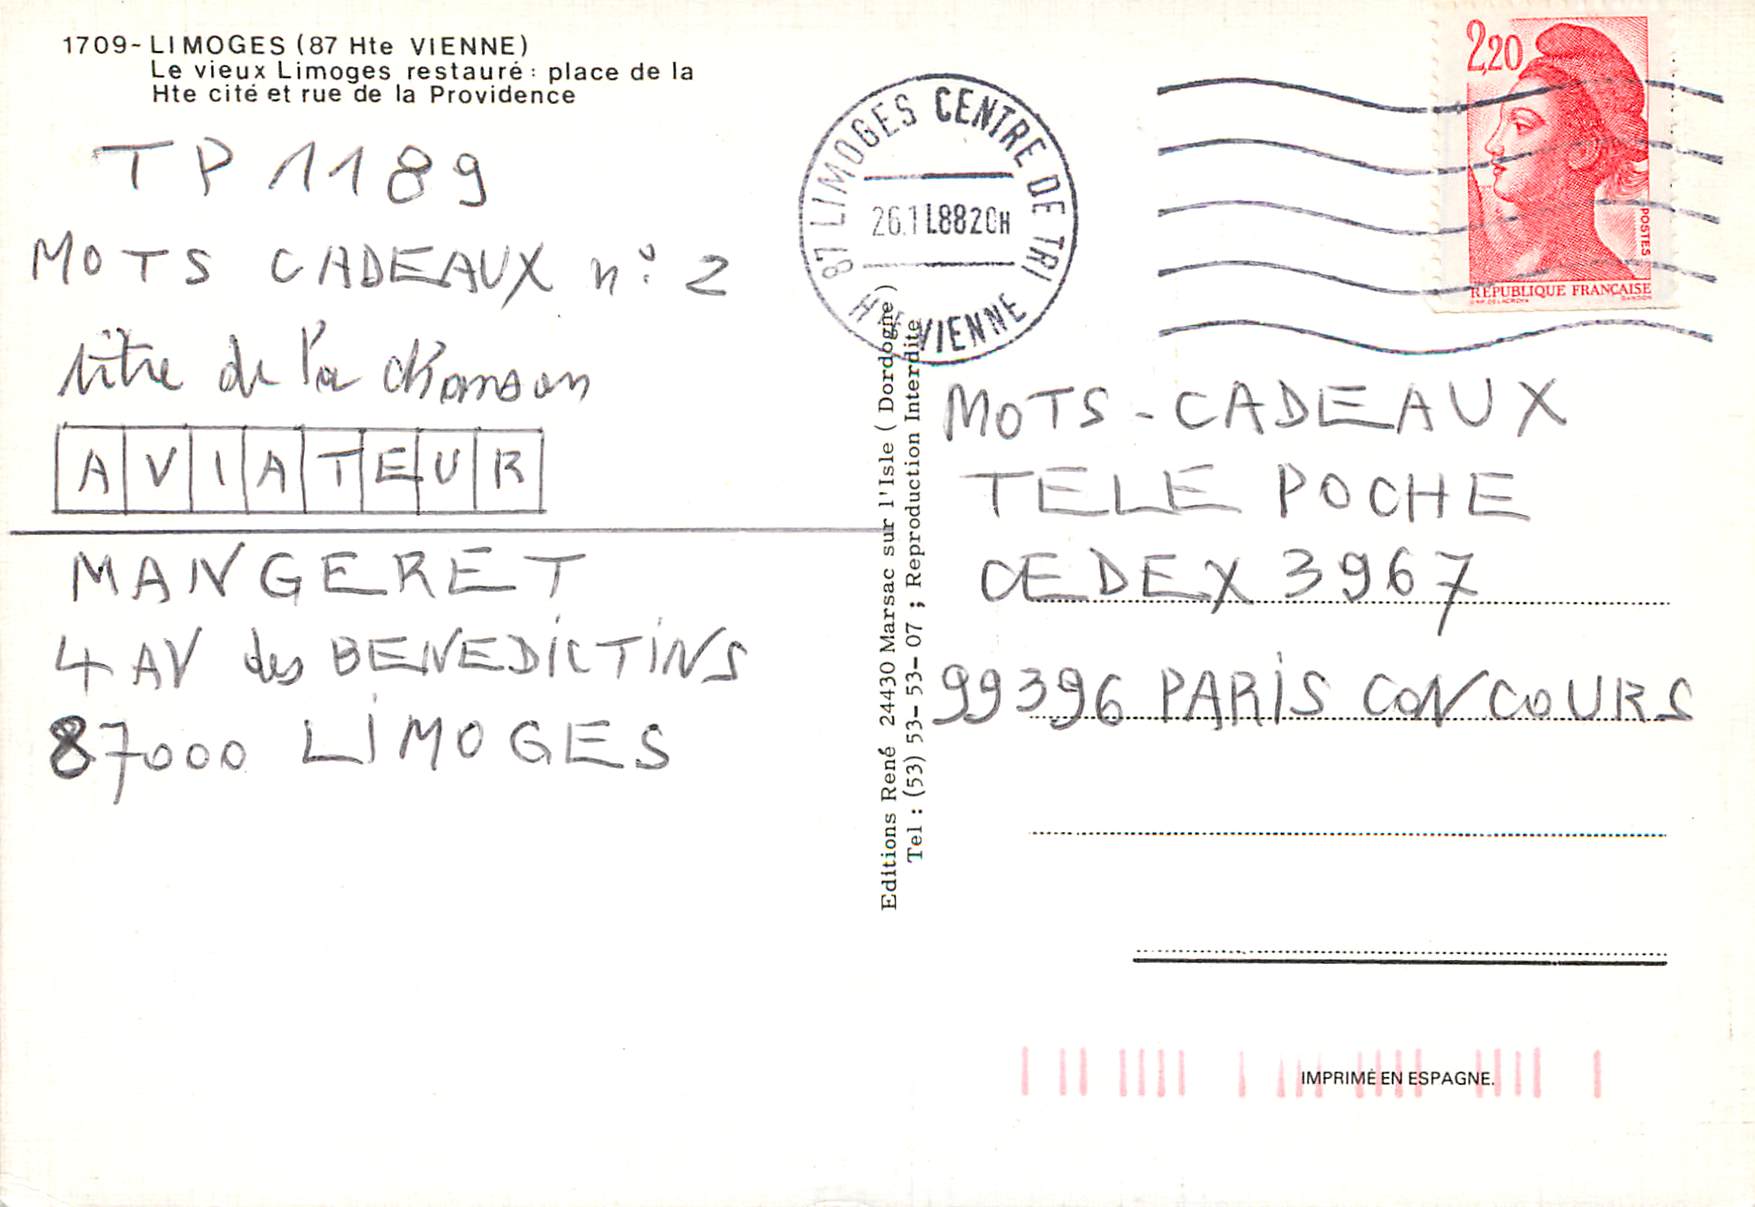 1709-LIMOGES (87 Hte VIENNE)
Le vieux Limoges restauré : place de la
Hte cité et rue de la Providence
TP 1189
MOTS CADEAUX n° 2
titre de la chanson
AVIATEUR
MANGERET
4 AV des BENEDICTINS
87000 LIMOGES
87 LIMOGES CENTRE DE TRI
26.7L8820H
Hte VIENNE
2,20
POSTES
REPUBLIQUE FRANÇAISE
Editions René 24430 Marsac sur l'Isle ( Dordogne )
Tel : (53) 53-53-07 ; Reproduction Interdite
MOTS-CADEAUX
TELE POCHE
CEDEX 3967
99396 PARIS CONCOURS
IMPRIMÉ EN ESPAGNE.